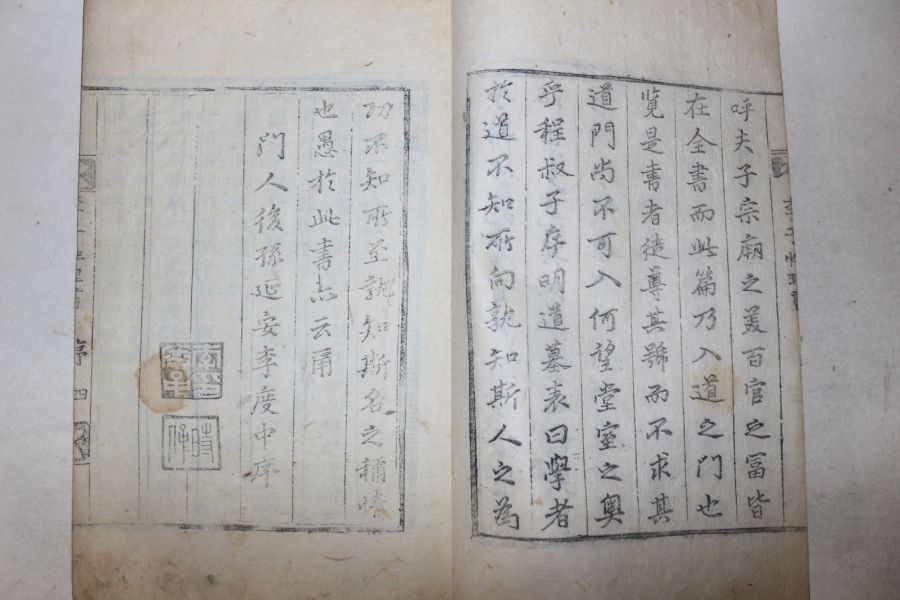 呼夫子宗廟之美百官之冨皆
在全書而此篇乃入道之門也
覧是書者徒尊其號而不求其
道門尚不可入何望堂室之奥
乎程叔子序明道墓表曰學者
於道不知所向孰知斯人之為
功不知所至孰知斯名之稱情
也愚於此書亦云爾
門人後孫延安李度中序
序
四